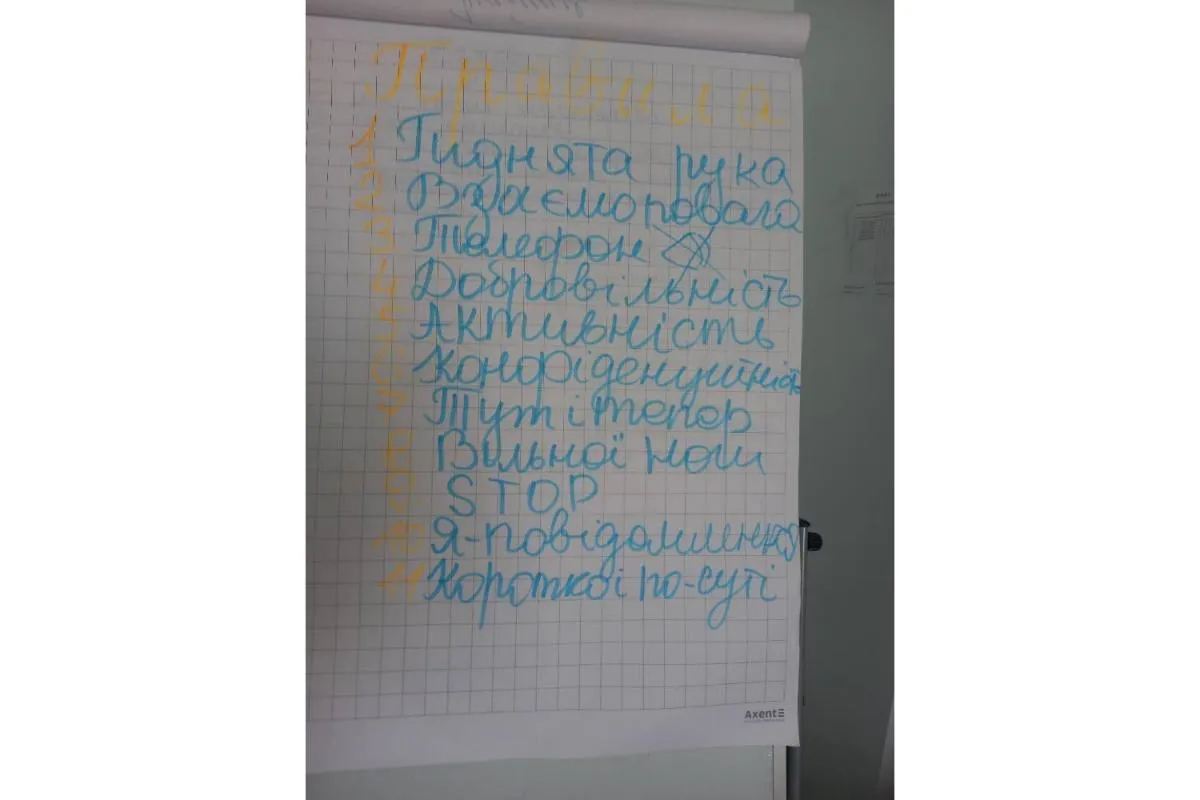 Правила
1 Піднята рука
2 Взаємоповага
3 Телефон
4 Добровільність
5 Активність
6 Конфіденційність
7 Тут і тепер
8 Вільної ноги
9 STOP
10 Я-повідомлення
11 Коротко і по-суті
Axent